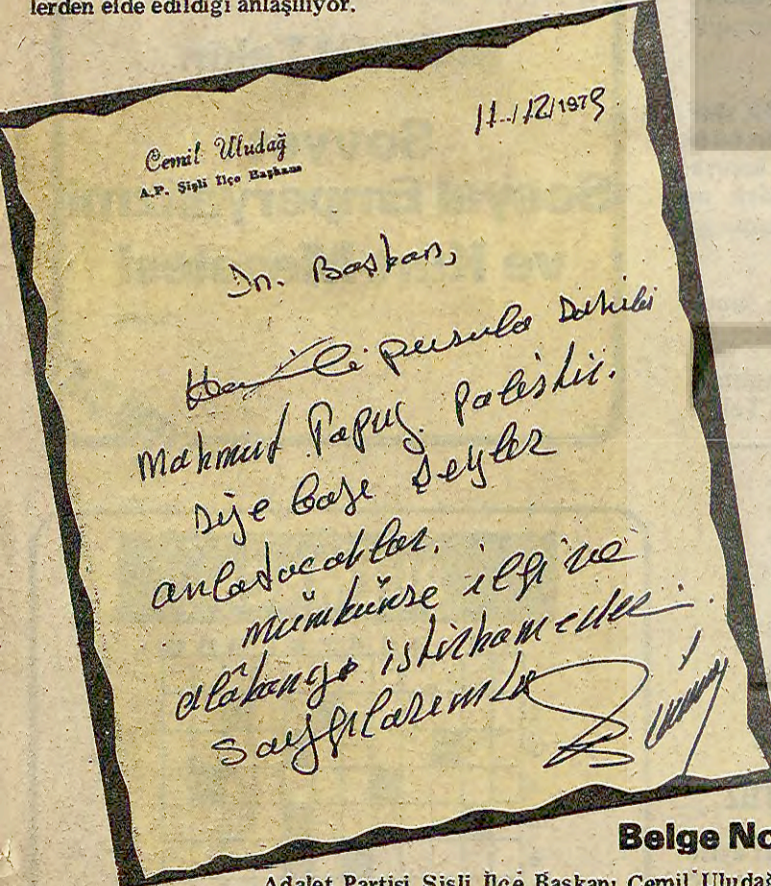 lerden elde edildiği anlaşılıyor.
Cemil Uludağ
A.P. Şişli İlçe Başkanı
11../12/1979
Sn. Başkan,
Hamili pusula Sahibi
Mahmut Polistir.
Size bazı şeyler
anlatacaklar.
mümkünse ilgi ve
alâkanızı istirham eder
Saygılarımla
Belge No
Adalet Partisi Şişli İlçe Başkanı Cemil Uludağ